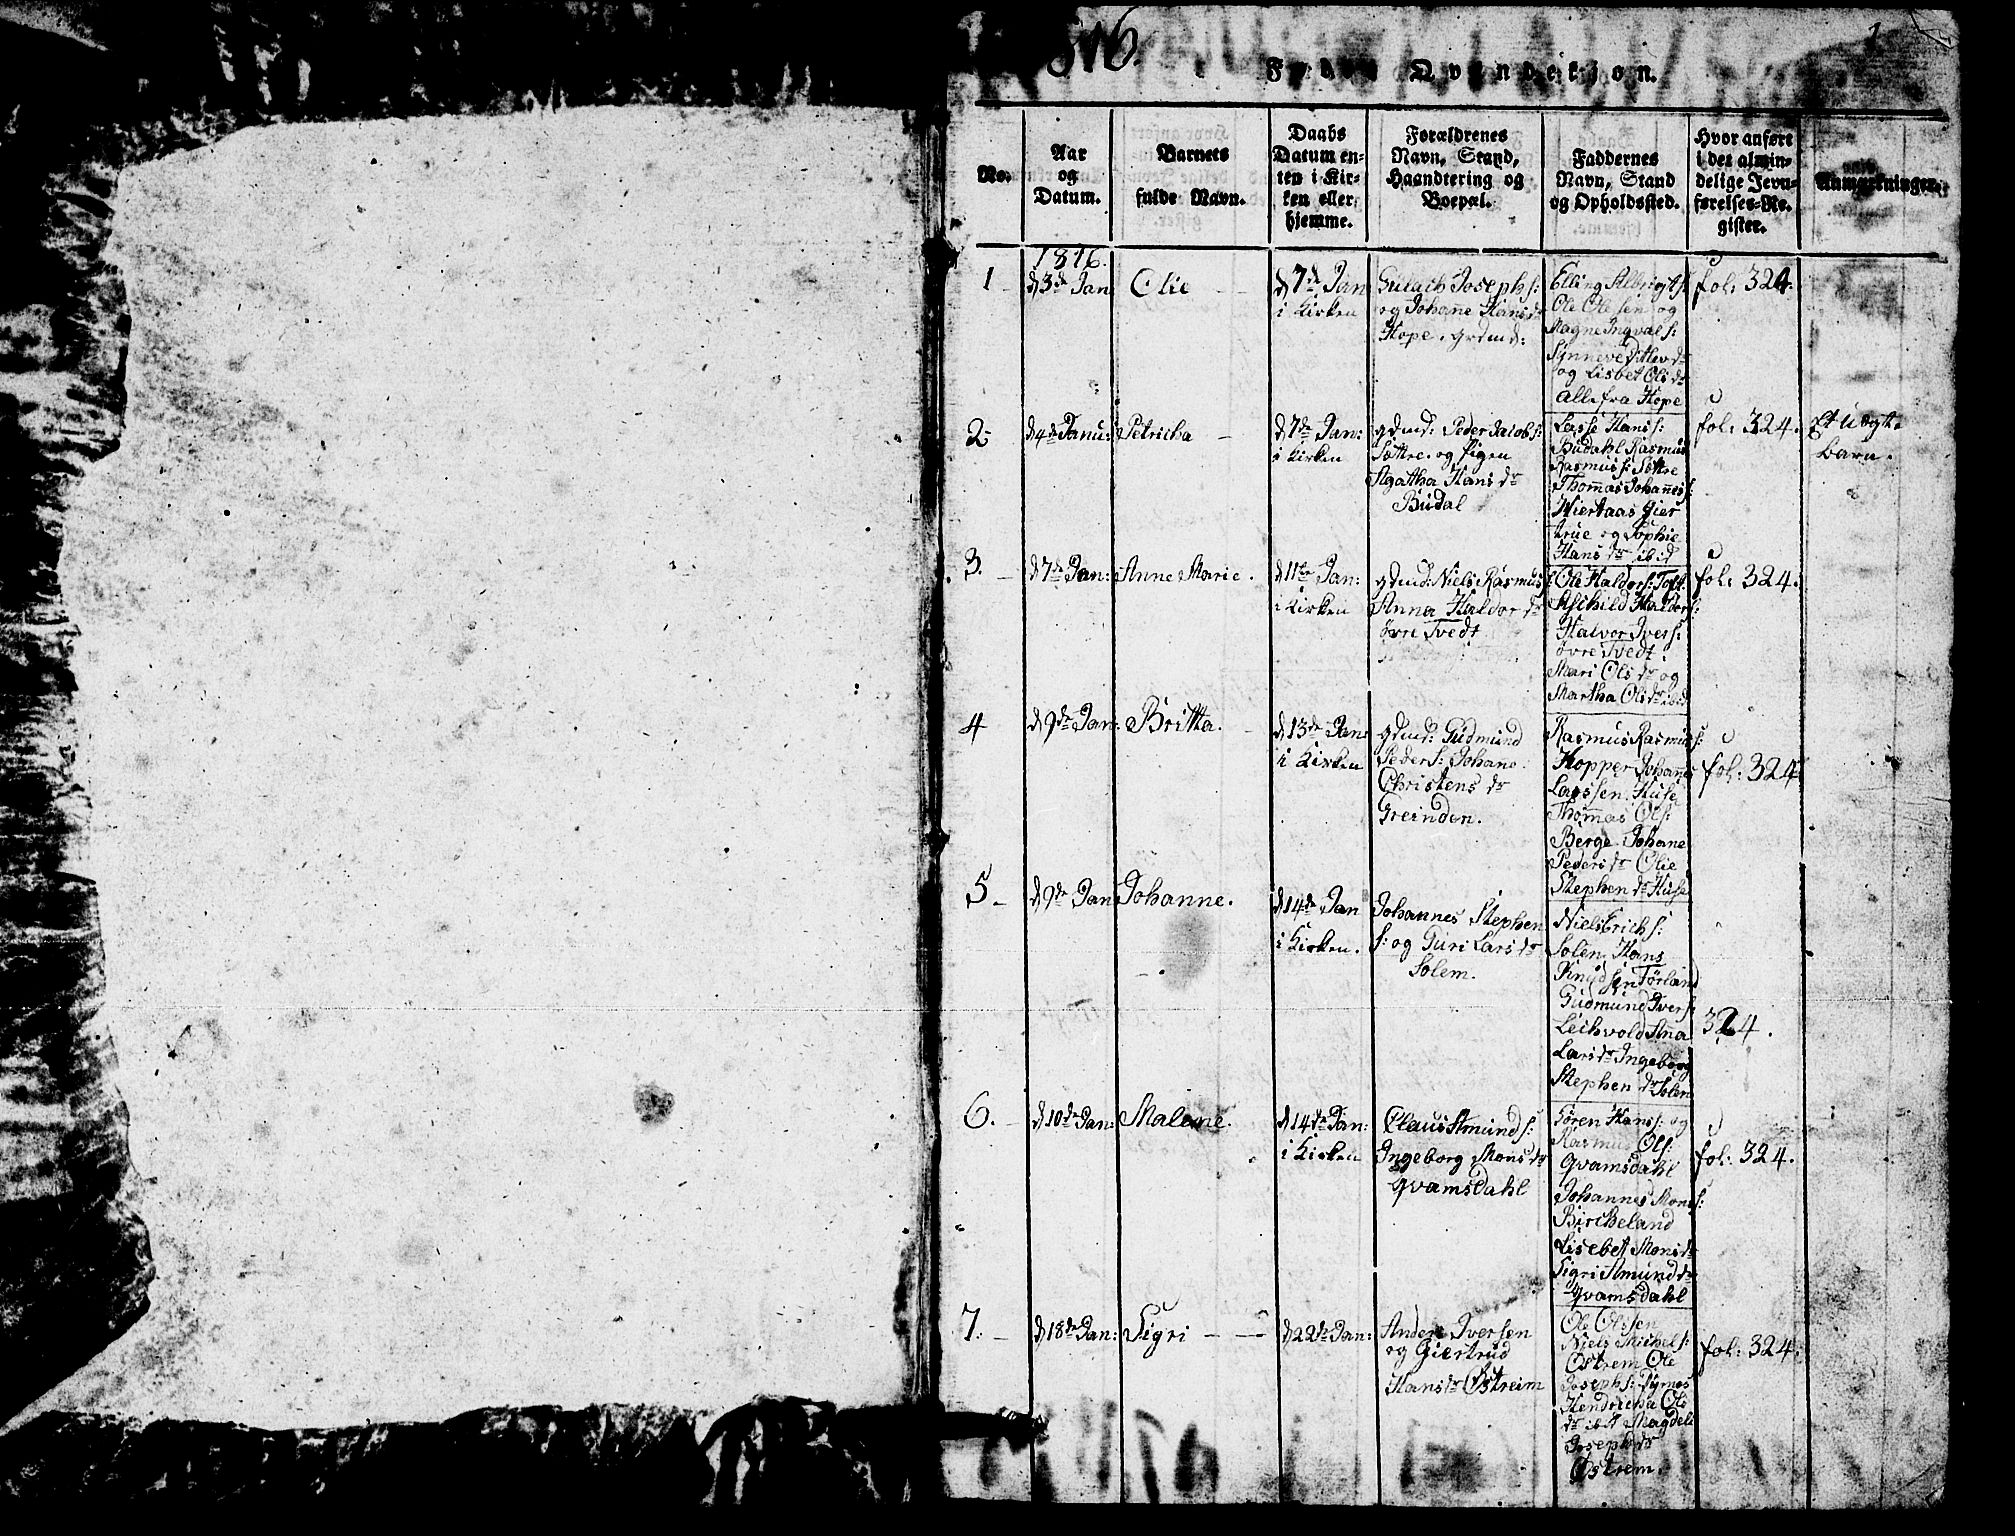 1816.
1
Fødte Qvindekjøn.
No.
Aar
og
Datum.
Barnets
fulde Navn.
Daabs
Datum en-
ten i Kir-
ken eller
hjemme.
Forældrenes
Navn, Stand,
Haandtering og
Boepæl.
Faddernes
Navn, Stand
og Opholdssted.
Hvor anført
i det almin-
delige Jevn-
førelses-Re-
gister.
Anmærkninger.
1816.
1
d 3de Jan
Olie
d 7de Jan
i Kirken
Gulach Josephs:
og Johanne Hansdr
Hope, grdmd:
Elling Albrigts:
Ole Olesen og
Magne Ingvals:
Synneve Ditlevdr
og Lisbet Olsdr
alle fra Hope
fol: 324.
2
d 4de Janu:
Petricha
d 7de Jan:
i Kirken
gdmd: Peder Jacobs:
Sættre og Pigen
Agatha Hansdr
Budal
Lasse Hans:
Budahl Rasmus
Rasmuss: Settre
Thomas Johanes:
Hiertaas Gier
true og Sophie
Hansdr ibid
fol: 324.
Et uægte
barn.
3.
d 7de Jan:
Anne Marie.
d 11te Jan:
i Kirken
gdmd: Niels Rasmuss:
Anna Haldordr
øvre Tvedt
Ole Haldors: Toft.
Aschild Haldors:
Halvor Ivers:
øvre Tvedt
Mari Olsdr og
Martha Olsdr ibid
fol: 324.
4
d 9de Jan:
Britta.
d 13de Jan:
i Kirken
gdmd: Gudmund
Peders: Johane
Christensdr
Greinden.
Rasmus Rasmus:
Hopper Johanes
Larssen Huse
Thomas Ols:
Berge Johane
Pedersdr Olie
Stephendr Huse
fol: 324
5
d 9de Jan
Johanne.
d 14de Jan
i Kirken.
Johannes Stephen
s: og Guri Larsdr
Solem.
Niels Erichs:
Solen Hans
Knudsen Førland
Gudmund Ivers:
Leihvold Ana
Larsdr Ingeborg
Stephendr Solem
324.
6.
d 10de Jan:
Malene.
d 14de Jan:
i Kirken
Claus Amunds:
Ingeborg Monsdr
Qvamsdahl
Søren Hans: og
Rasmus Ols:
Qvamsdahl
Johannes Mons:
Bircheland
Lisebet Monsdr
Sigri Amunddr
Qvamsdahl
fol: 324.
7.
d 18de Jan:
Sigri
d 22de Jan:
Anders Iversen
og Giertrud
Hansdr Østreim
Ole Olssen
Niels Michels:
Østrem Ole
Josephs: Synes
Hendricha Ols
dr ibd Magdeli
Josephdr
Østrem.
fol: 324.